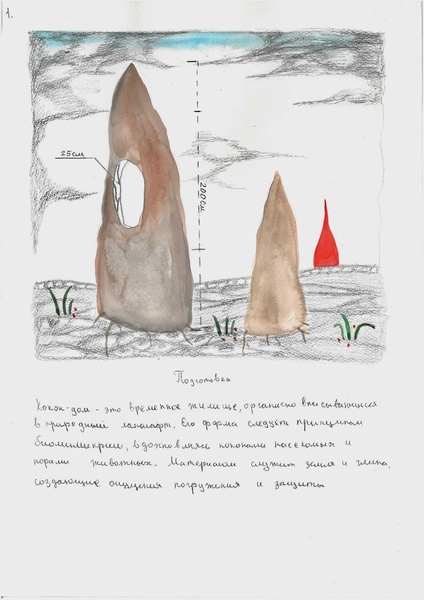 1.
25см
200см
Подготовка
Кокон-дом - это временное жилище, органично вписывающееся
в природный ландшафт. Его форма следует принципам
биомимикрии, вдохновляясь коконами насекомых и
норами животных. Материалом служит земля и глина,
создающие ощущения погружения и защиты